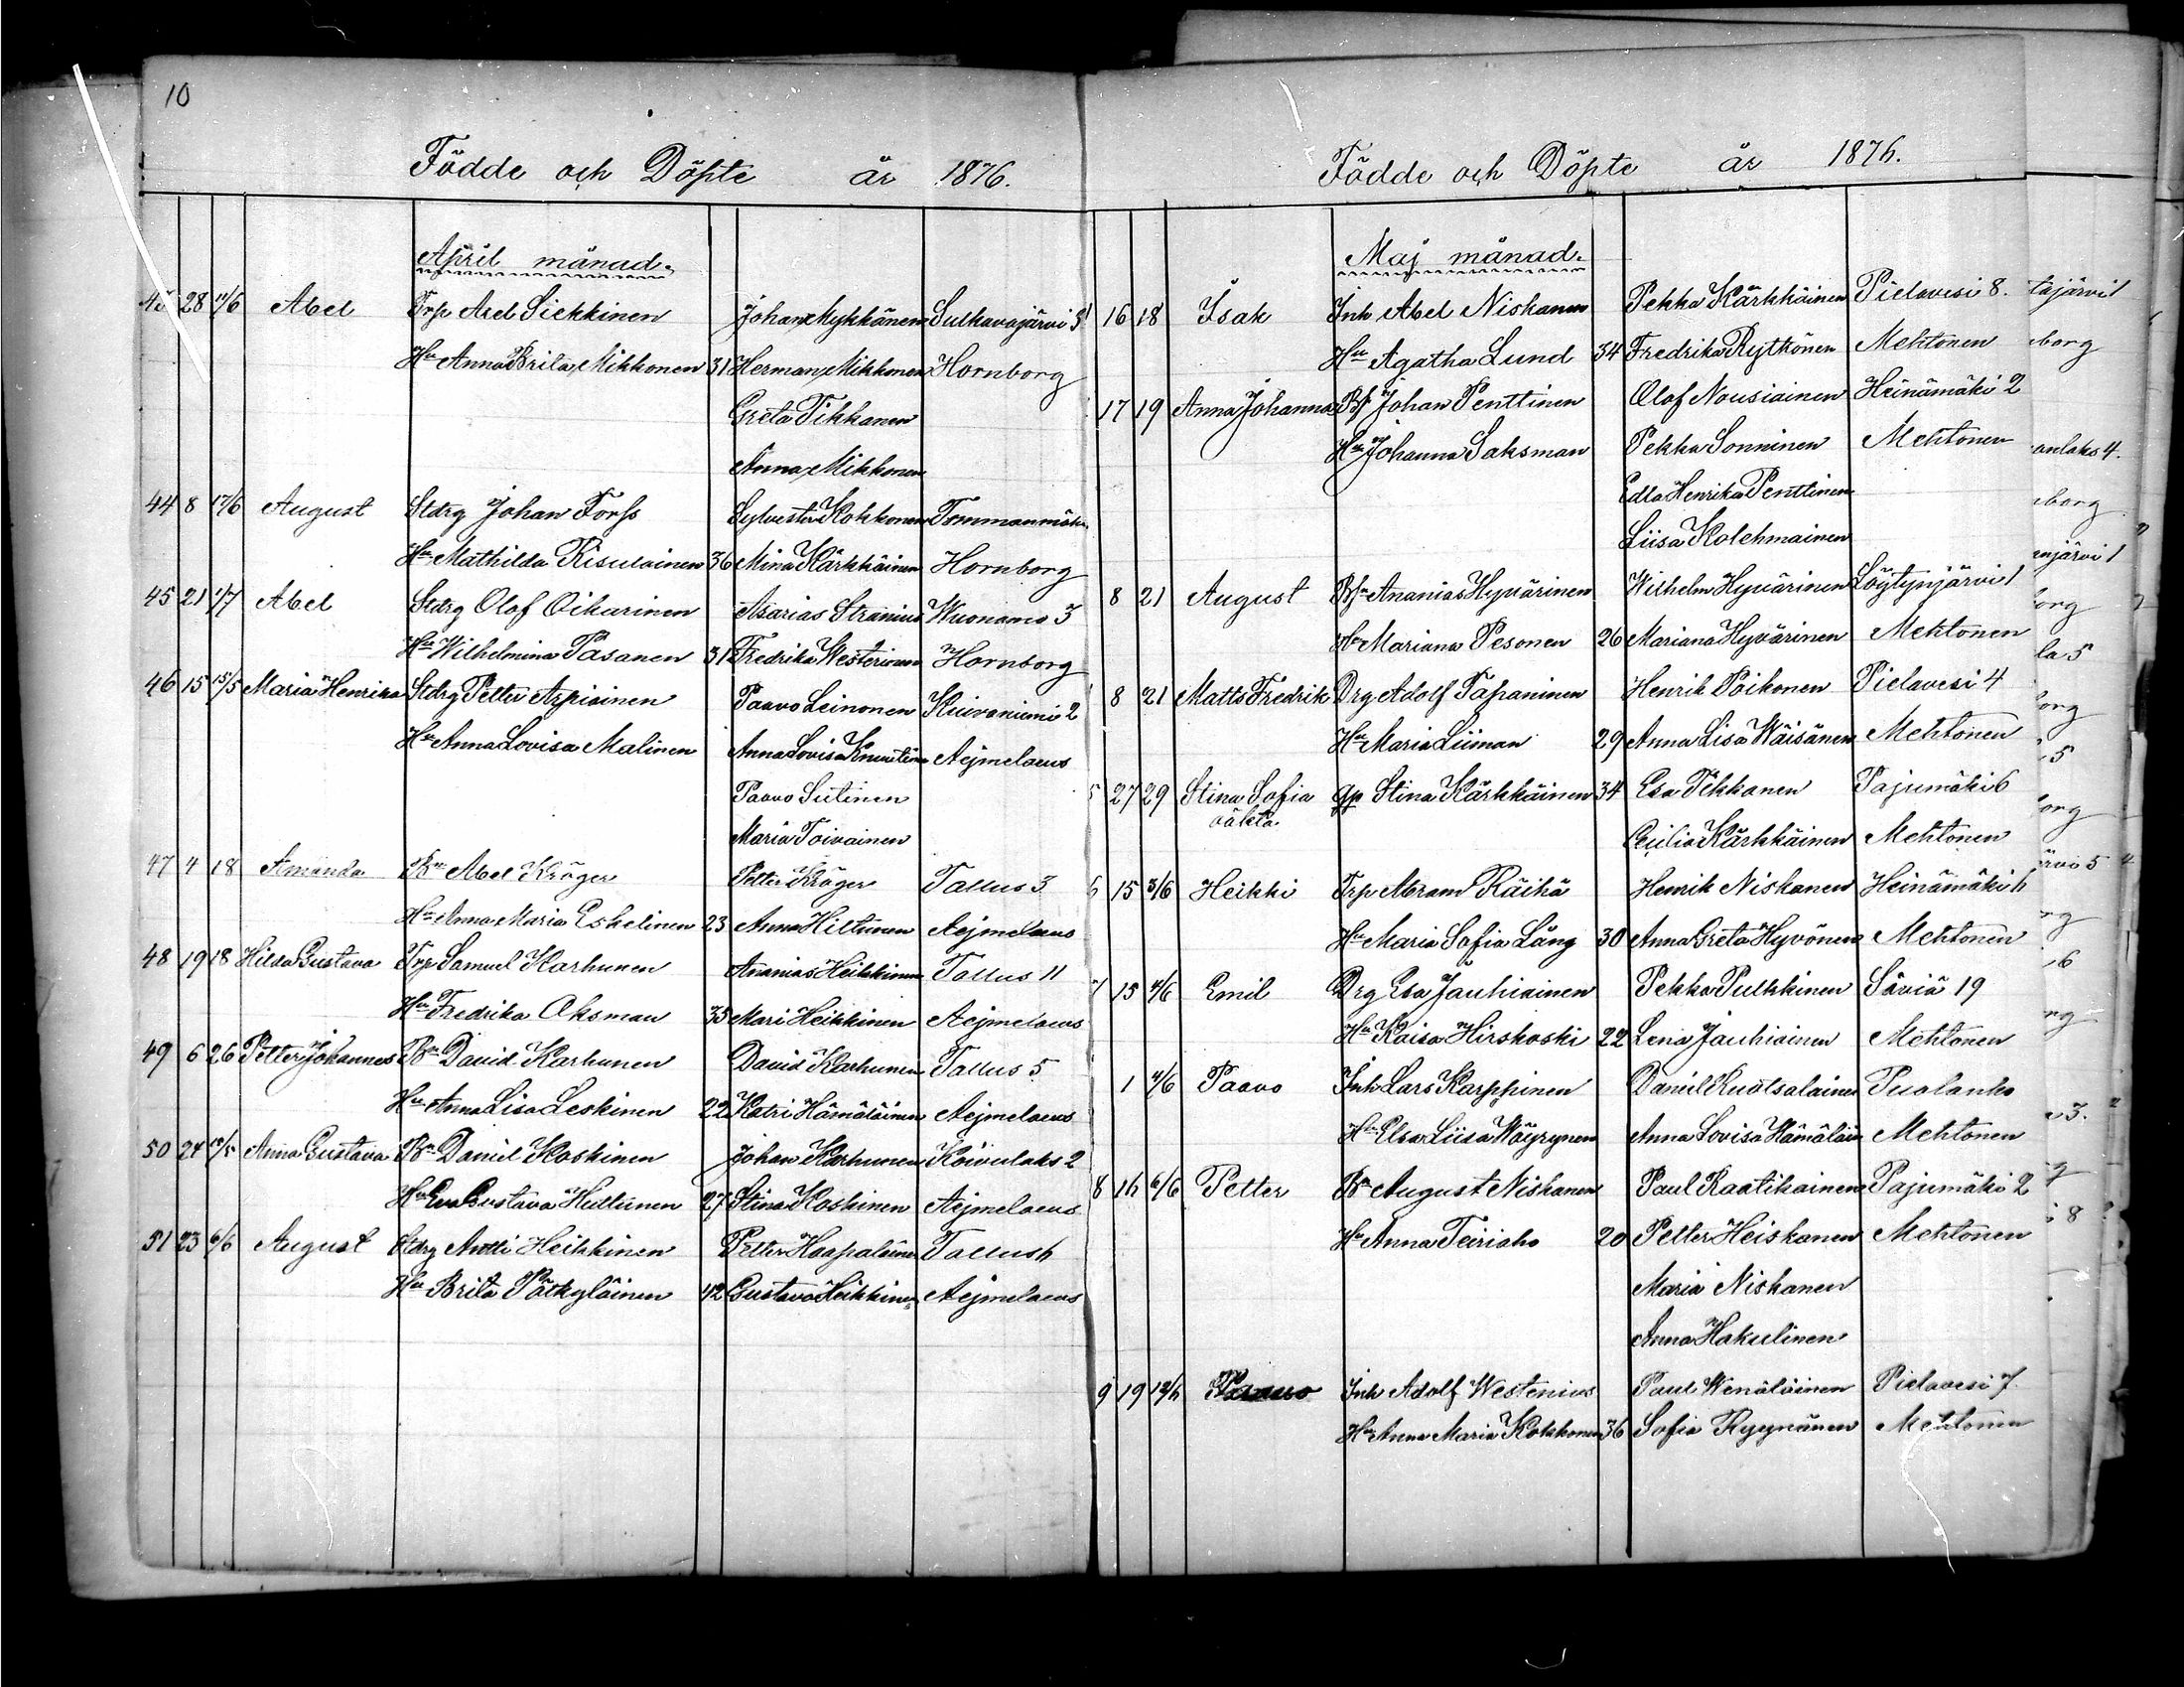 10
Födde och Döpte år 1876.
April månad.
43 28 11/6 Abel Trp Axel Siekkinen Johan Mykkänen Sulkavajärvi 3
Hu Anna Brita Mikkonen 31 Herman Mikkonen Hornborg
Greta Tikkanen
Anna Mikkonen
44 8 17/6 August Stdrg Johan Forss Sylvester Kokkonen
Hu Mathilda Risulainen 36 Mina Kärkkäinen Hornborg
45 21 1/7 Abel Stdrg Olof Oikarinen Asarias Stranius Wuonamo 3
Hu Wilhelmina Pasanen 31 Fredrika Westerinen Hornborg
46 15 15/5 Maria Henrika Stdrg Petter Arpiainen Paavo Leinonen Kuivaniemi 2
Hu Anna Lovisa Malinen Anna Lovisa Knuutinen Aejmelaeus
Paavo Sutinen
Maria Toivainen
47 4 18 Amanda Bn Abel Kröger Petter Kröger Tallus 3
Hu Anna Maria Eskelinen 23 Anna Hiltunen Aejmelaeus
48 19 18 Hilda Gustava Trp Samuel Karhunen Ananias Heikkinen Tallus 11
Hu Fredrika Oksman 35 Mari Heikkinen Aejmelaeus
49 6 26 Petter Johannes Bn David Karhunen David Karhunen Tallus 5
Hu Anna Lisa Leskinen 22 Katri Hämäläinen Aejmelaeus
50 24 Anna Gustava Bn Daniel Koskinen Johan Karhunen Koivulaks 2
Hu Eva Gustava Huttunen 27 Stina Koskinen Aejmelaeus
51 23 6/6 August Stdrg Antti Heikkinen Petter Haapalainen Tallus 6
Hu Brita Pölkyläinen 42 Gustava Heikkinen Aejmelaeus
Födde och Döpte år 1876.
Maj månad.
16 18 Isak Inh Abel Niskanen Pekka Kärkkäinen Pielavesi 8.
Hu Agatha Lund 34 Fredrika Rytkönen Mehtonen
17 19 Anna Johanna Bf Johan Penttinen Olof Nousiainen Heinämäki 2
Hu Johanna Saksman Pekka Sonninen Mehtonen
Edla Henrika Penttinen
Liisa Kolehmainen
8 21 August Bfn Ananias Hyvärinen Wilhelm Hyvärinen Löytynjärvi 1
Hu Mariana Pesonen 26 Mariana Hyvärinen Mehtonen
8 21 Matts Fredrik Drg Adolf Tapaninen Henrik Poikonen Pielavesi 4
Hu Maria Liiman 29 Anna Lisa Wäisänen Mehtonen
5 27 29 Stina Sofia qp Stina Kärkkäinen 34 Esa Tikkanen Pajumäki 6
oäkta Cecilia Kärkkäinen Mehtonen
6 15 3/6 Heikki Trp Abram Räihä Henrik Niskanen Heinämäki 6
Hu Maria Sofia Lång 30 Anna Greta Hyvönen Mehtonen
7 15 4/6 Emil Drg Esa Jauhiainen Pekka Pulkkinen Säviä 19
Hu Kaisa Hirskoski 22 Lena Jauhiainen Mehtonen
1 4/6 Paavo Inh Lars Karppinen Daniel Kuotsalainen Puolanko
Hu Elsa Liisa Wäyrynen Anna Lovisa Hämäläin Mehtonen
8 16 6/6 Petter Bn August Niskanen Paul Raatikainen Pajumäki 2
Hu Anna Teiriaho 20 Petter Heiskanen Mehtonen
Maria Niskanen
Anna Hakulinen
9 19 12/6 Paavo Inh Adolf Westenius Paul Wenäläinen Pielavesi 7
Hu Anna Maria Kokkonen 36 Sofia Ryynänen Mehtonen